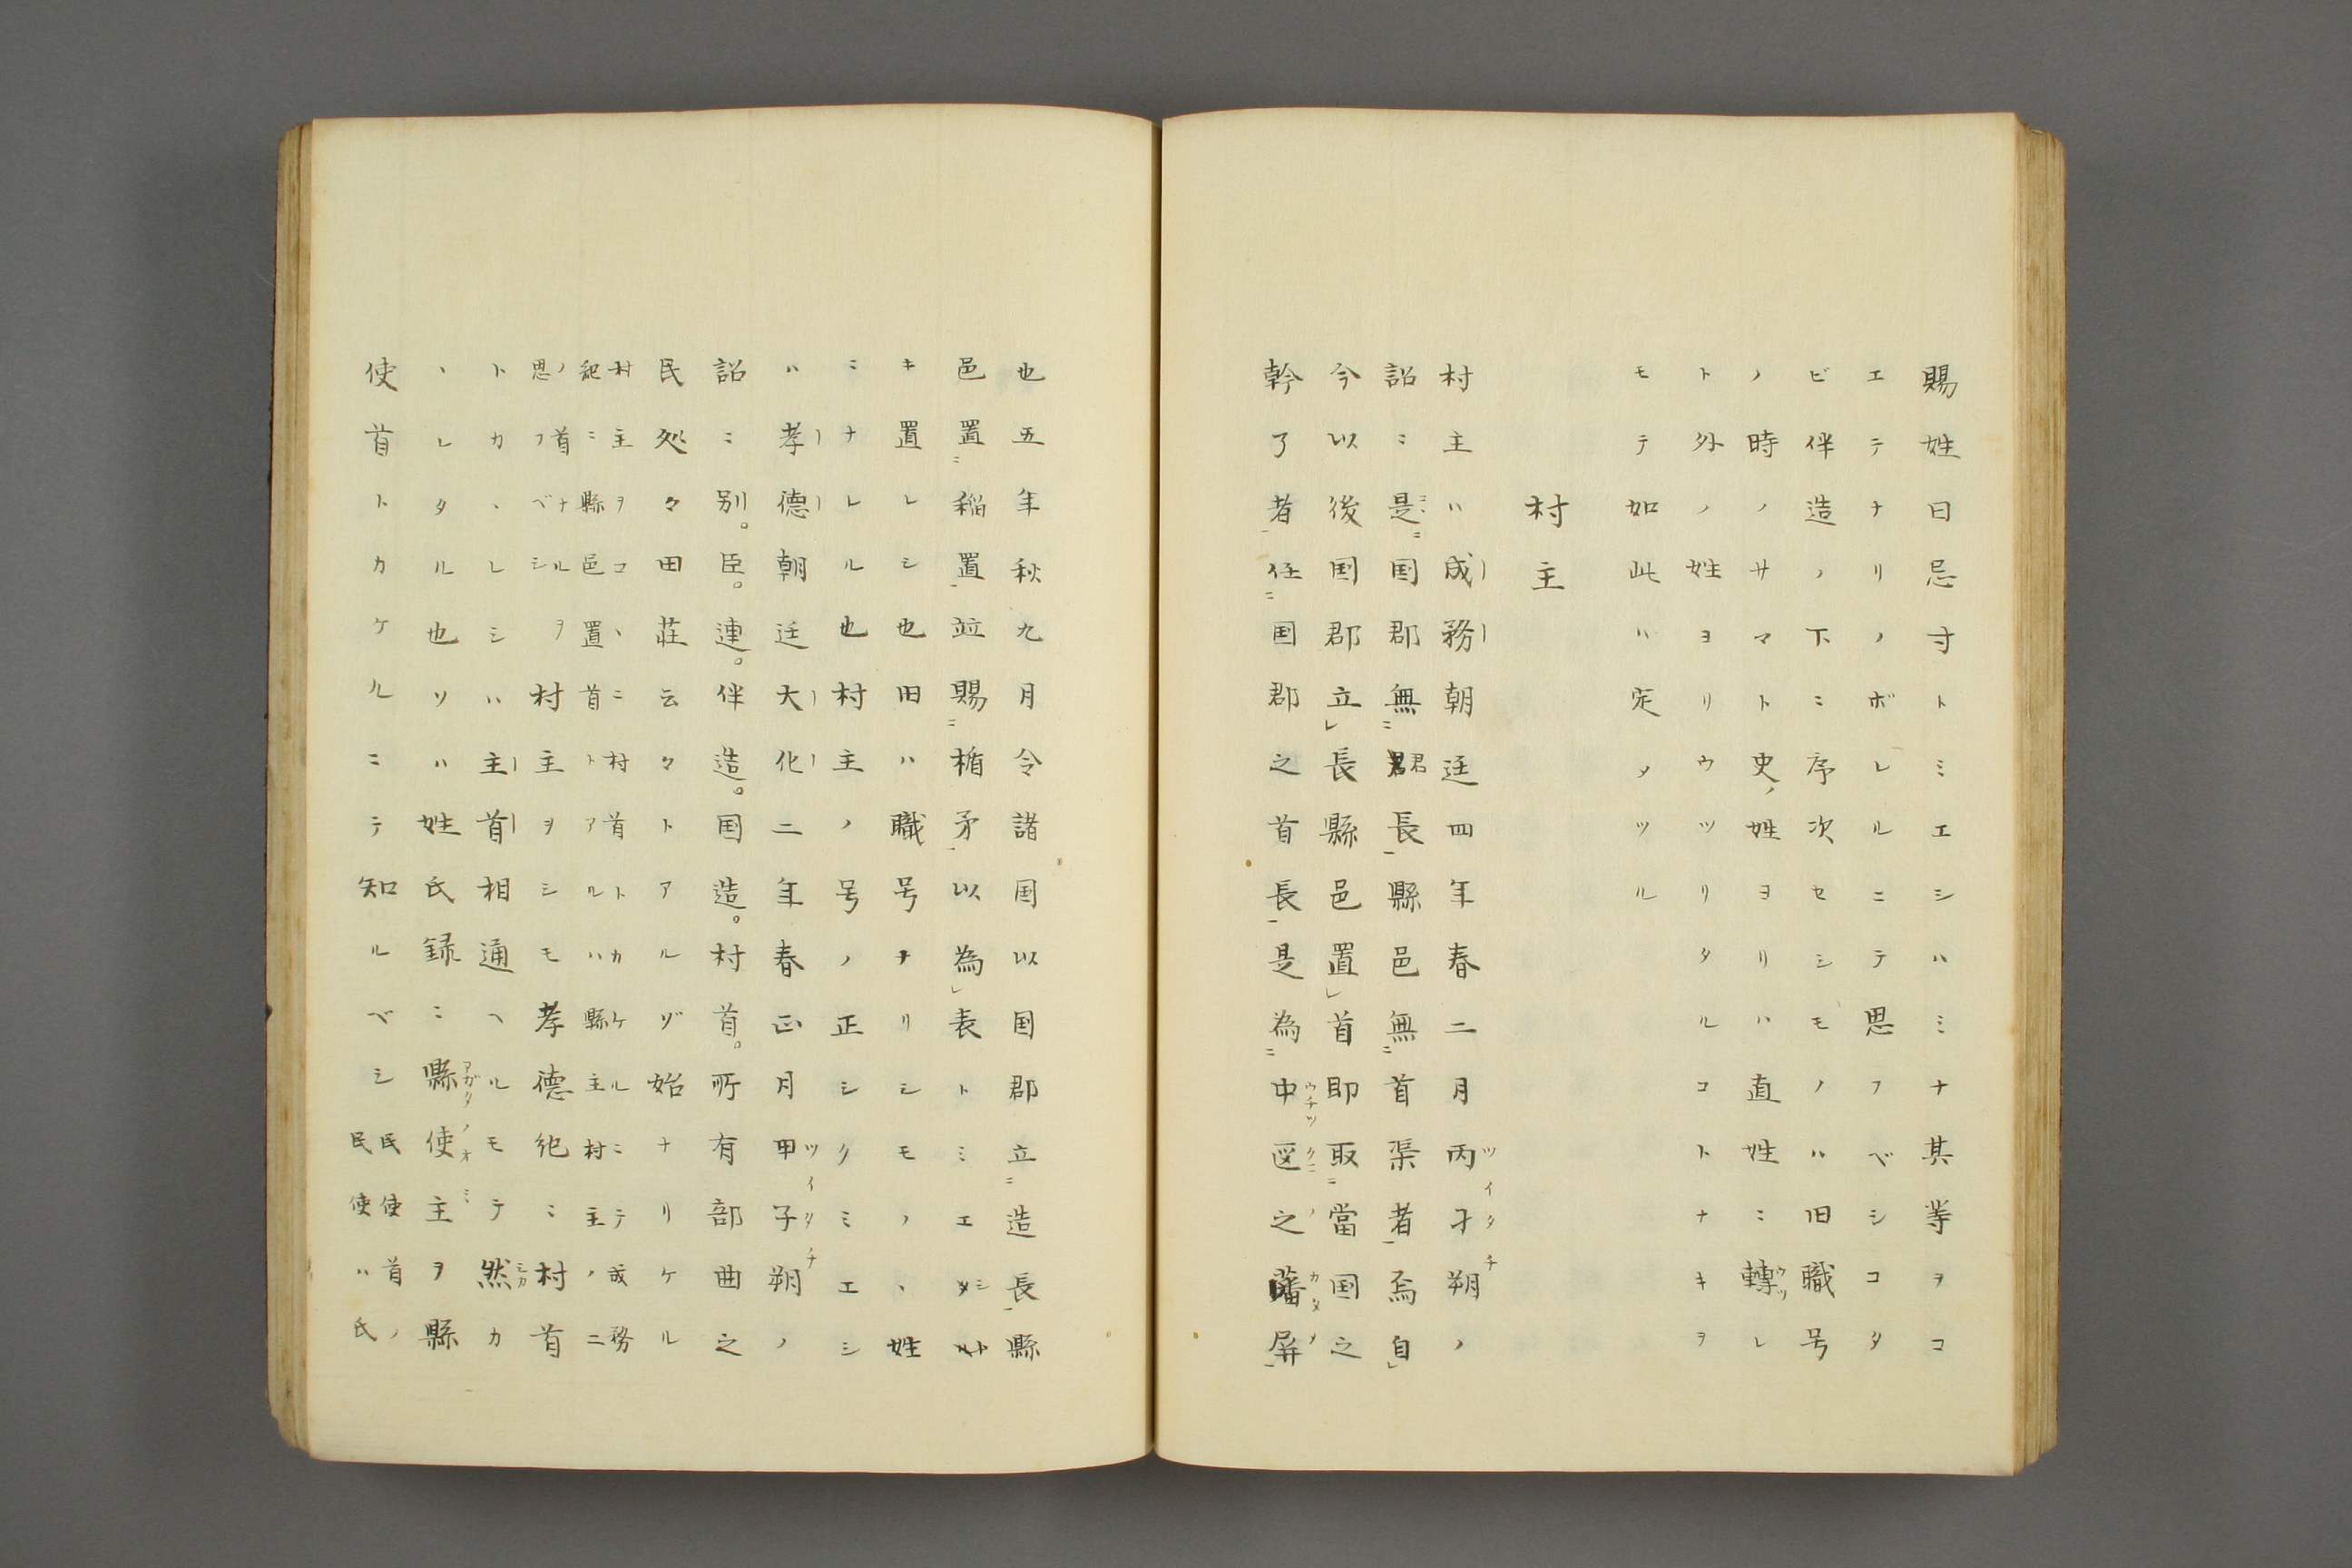 賜姓曰忌寸トミエシハミナ其等ヲコ
エテナリノボレルニテ思フベシコタ
ビ伴造ノ下ニ序次セシモノハ旧職号
ノ時ノサマト史ノ姓ヨリハ直姓ニ轉レ
ト外ノ姓ヨリウツリタルコトナキヲ
モテ如此ハ定メツル
村主
村主ハ成務朝廷四年春二月丙寅朔ノ
詔ニ是国郡無君長縣邑無首渠者焉自
今以後国郡立長縣邑置首即取當国之
幹了者任国郡之首長是為中区之藩屏
也五年秋九月令諸国以国郡立造長縣
邑置稲置並賜楯矛以為表トミエシ
キ置レシ也旧ハ職号ナリシモノヽ姓
ミナレル也村主ノ号ノ正シクミエシ
ハ孝德朝廷大化二年春正月甲子朔ノ
詔ニ別。臣。連。伴造。国造。村首。所有部曲之
民処々田荘云々トアルゾ始ナリケル
村主ヲコヽニ村首トカケルニテ成務
紀ニ縣邑置首トアルハ縣主村主ノ二
ノ首ナルヲ村主ヲシモ孝德紀ニ村首
思フベシ
トカヽレシハ主首相通ヘルモテ然カ
ヽレタル也ソハ姓氏録ニ縣使主ヲ縣
使首トカケルニテ知ルベシ
民使首ノ
民使ハ氏